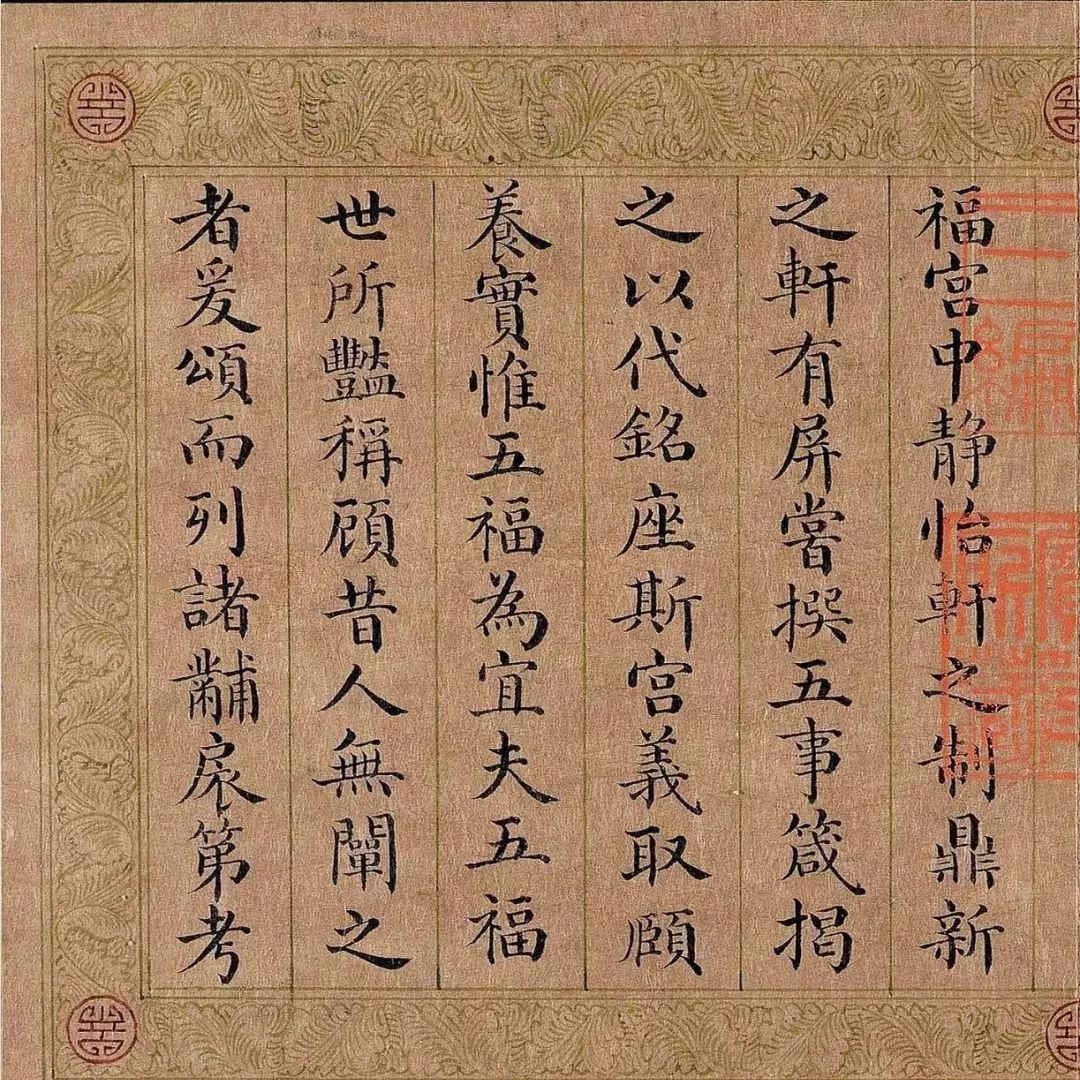 福宮中静怡軒之制鼎新
之軒有屏嘗撰五事箴揭
之以代銘座斯宮義取頤
養實惟五福為宜夫五福
世所豔稱顧昔人無闡之
者爰頌而列諸黼扆第考